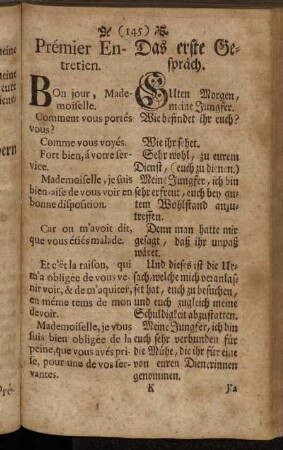 (145)
Prémier En-
tretien.
BOn jour, Made-
moiselle.
Comment vous portés
vous?
Comme vous voyés.
Fort bien, á votre ser-
vice.
Mademoiselle, je suis
bien-aise de vous voir en
bonne disposition.
Car on m'avoit dit,
que vous étiés malade.
Et c'ét la raison, qui
m'a obligée de vous ve-
nir voir, & de m'aquiter,
en méme tems de mon
devoir.
Mademoiselle, je vous
suis bien obligée de la
peine, que vous avés pri-
se, pour une de vos ser-
vantes.
Das erste Ge-
spräch.
GUten Morgen,
meine Jungfer.
Wie befindet ihr euch?
Wie ihr sehet.
Sehr wohl, zu eurem
Dienst, (euch zu dienen.)
Meine Jungfer, ich bin
sehr erfreut, euch bey gu-
tem Wohlstand anzu-
treffen.
Denn man hatte mir
gesagt, daß ihr unpaß
wäret.
Und dieses ist die Ur-
sach, welche mich veranlas-
set hat, euch zu besuchen,
und euch zugleich meine
Schuldigkeit abzustatten.
Meine Jungfer, ich bin
euch sehr verbunden für
die Mühe, die ihr für eine
von euren Dienerinnen
genommen.
K
J'a